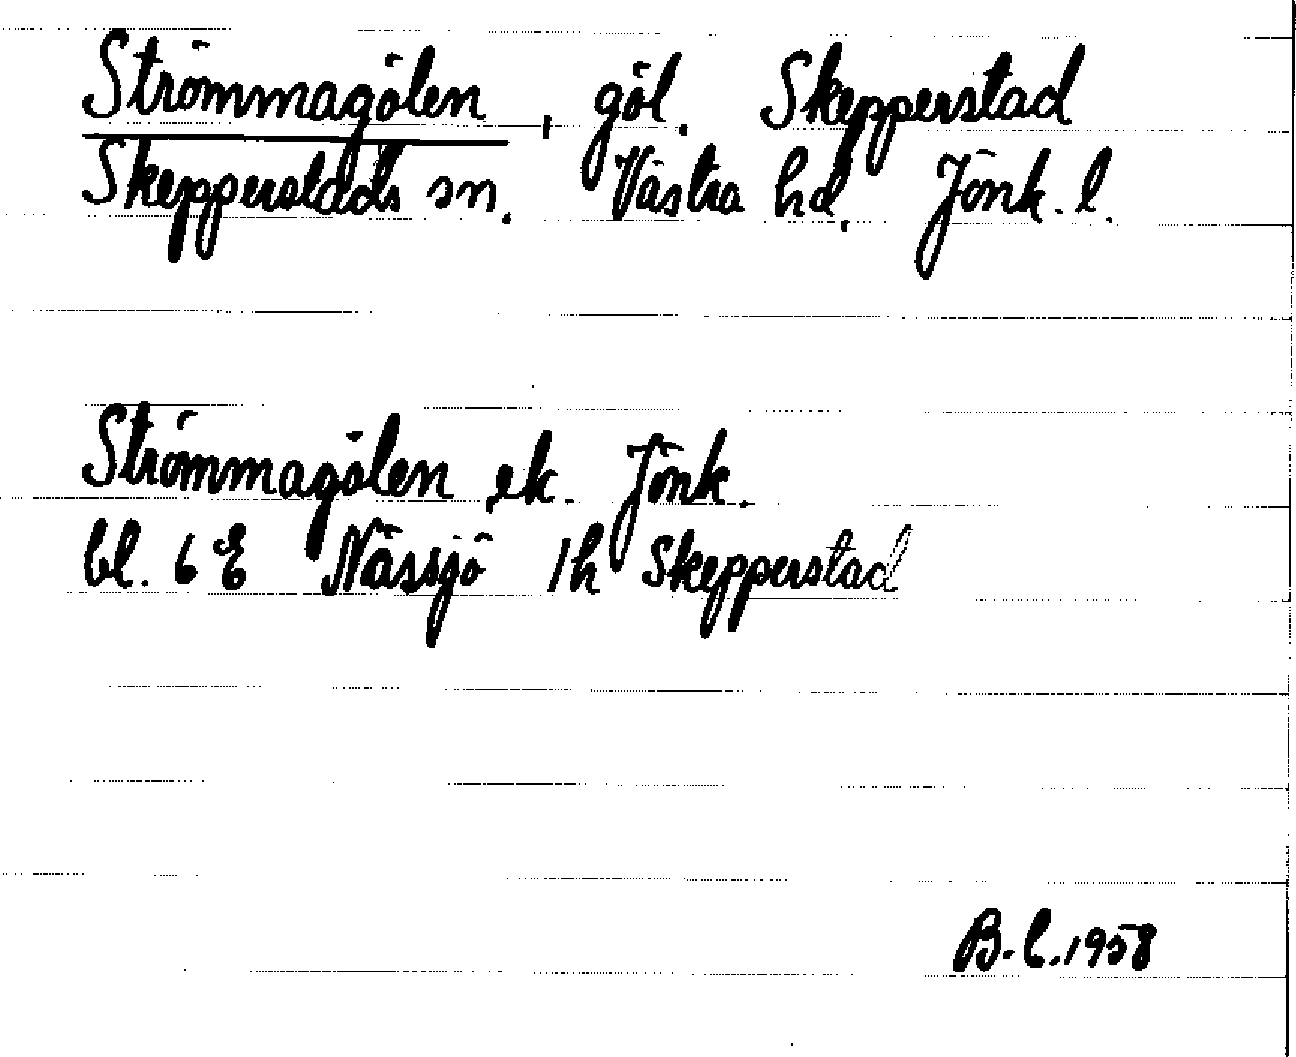 Strömmagölen, göl. Skepperstad
Skepperstads sn. Västra hd. Jönk. l.
Strömmagölen ek. Jönk.
bl. 6 E Nässjö 1h Skepperstad
B. L. 1958